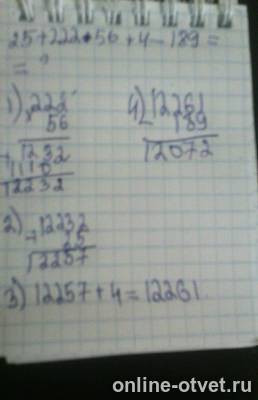 25+222*56+4-189=
= ?
1) 222
56
+1332
1110
12432
2) 12232
+ 25
12257
3) 12257+4=12261
4) 12261
- 189
12072
online-otvet.ru